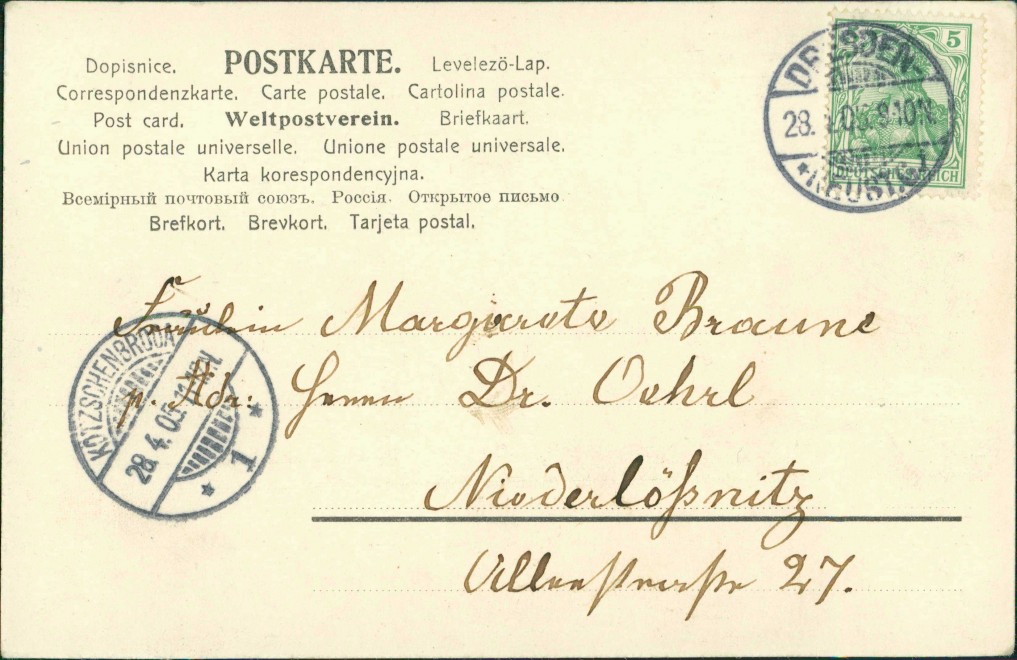 Dopisnice. POSTKARTE. Levelezö-Lap.
Correspondenzkarte. Carte postale. Cartolina postale.
Post card. Weltpostverein. Briefkaart.
Union postale universelle. Unione postale universale.
Karta korespondencyjna.
Всемірный почтовый союзъ. Россія. Открытое письмо
Brefkort. Brevkort. Tarjeta postal.
DRESDEN
28. 05. 9-10N.
*NEUST. 1
5
DEUTSCHES REICH
Fräulein Margarete Braune
p. Adr: Herrn Dr. Oehrl
Niederlößnitz
Villenstraße 27.
KÖTZSCHENBRODA
28.4.05.
* 1 *